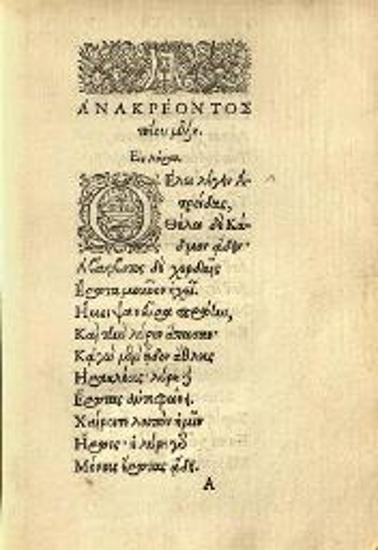 ΑΝΑΚΡΕΟΝΤΟΣ
Τηίου μέλη.
Εἰς λύραν.
Θέλω λέγειν Ἀ-
τρείδας,
Θέλω δὲ Κάδ-
μον ᾄδειν·
Α βάρβιτος δὲ χορδαῖς
Ερωτα μοῦνον ἠχεῖ.
Ημειψα νεῦρα πρώην,
Καὶ τὴν λύρην ἅπασαν·
Καγὼ μὲν ᾖδον ἄθλους
Ηρακλέους· λύρη δὲ
Ερωτας ἀντεφώνει.
Χαίροιτε λοιπὸν ἡμῖν
Ηρωες· ἡ λύρη γὰρ
Μόνους ἔρωτας ᾄδει.
A